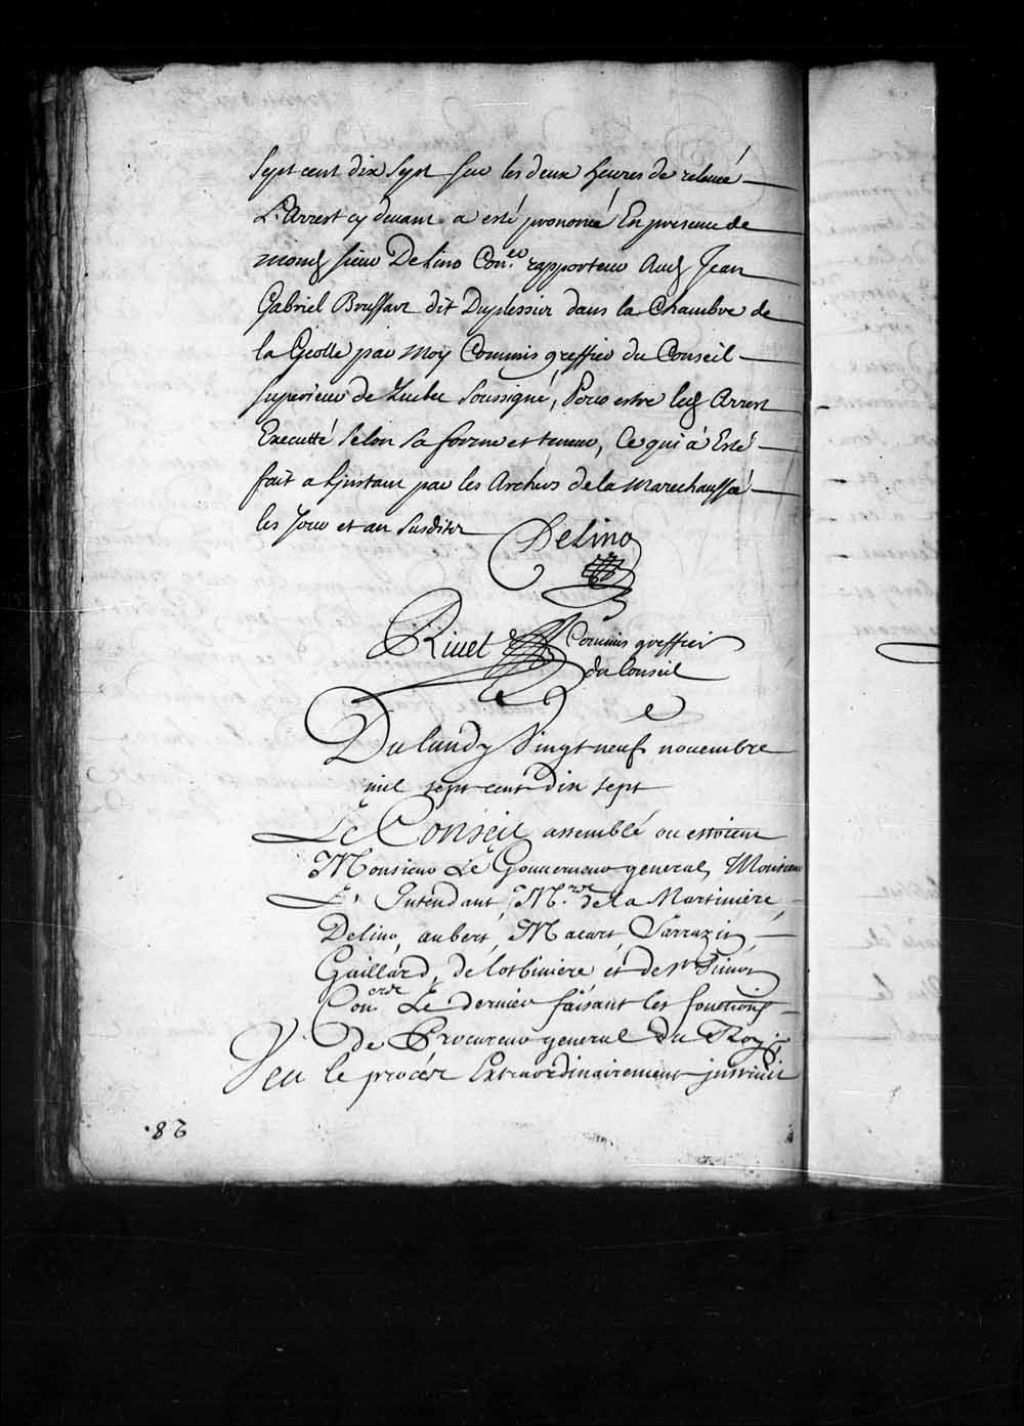 Sept cent dix Sept Sur les deux heures de releveé
L'Arrest cy devant a esté prononcé En presence de
mond Sieur Delino Con.er rapporteur Aud Jean
Gabriel Brussart dit Duplessir dans la Chambre de
la Geolle par Moy Commis greffier du Conseil
Superieur de Quebec Soussigné, Pour estre led Arrest
Executté Selon Sa forme et teneur, Ce qui à Esté
fait a Linstant par les Archers de la Marechaussée
les Jour et an Susdits
DeLino
Rivet Commis greffier
du Conseil
Du lundy Vingt neuf novembre
mil sept cent dix sept
Le Conseil assemblé ou estoient
Monsieur Le Gouverneur general, Monsieur
L'Intendant, M.rs de la Martiniere,
Delino, aubert, Macart, Sarrazin,
Gaillard, de lotbiniere et de St Simon
Con.ers Le dernier faisant les fonctions
de Procureur general du Roy;
Veu le procés Extraordinairement jnstruit
.82